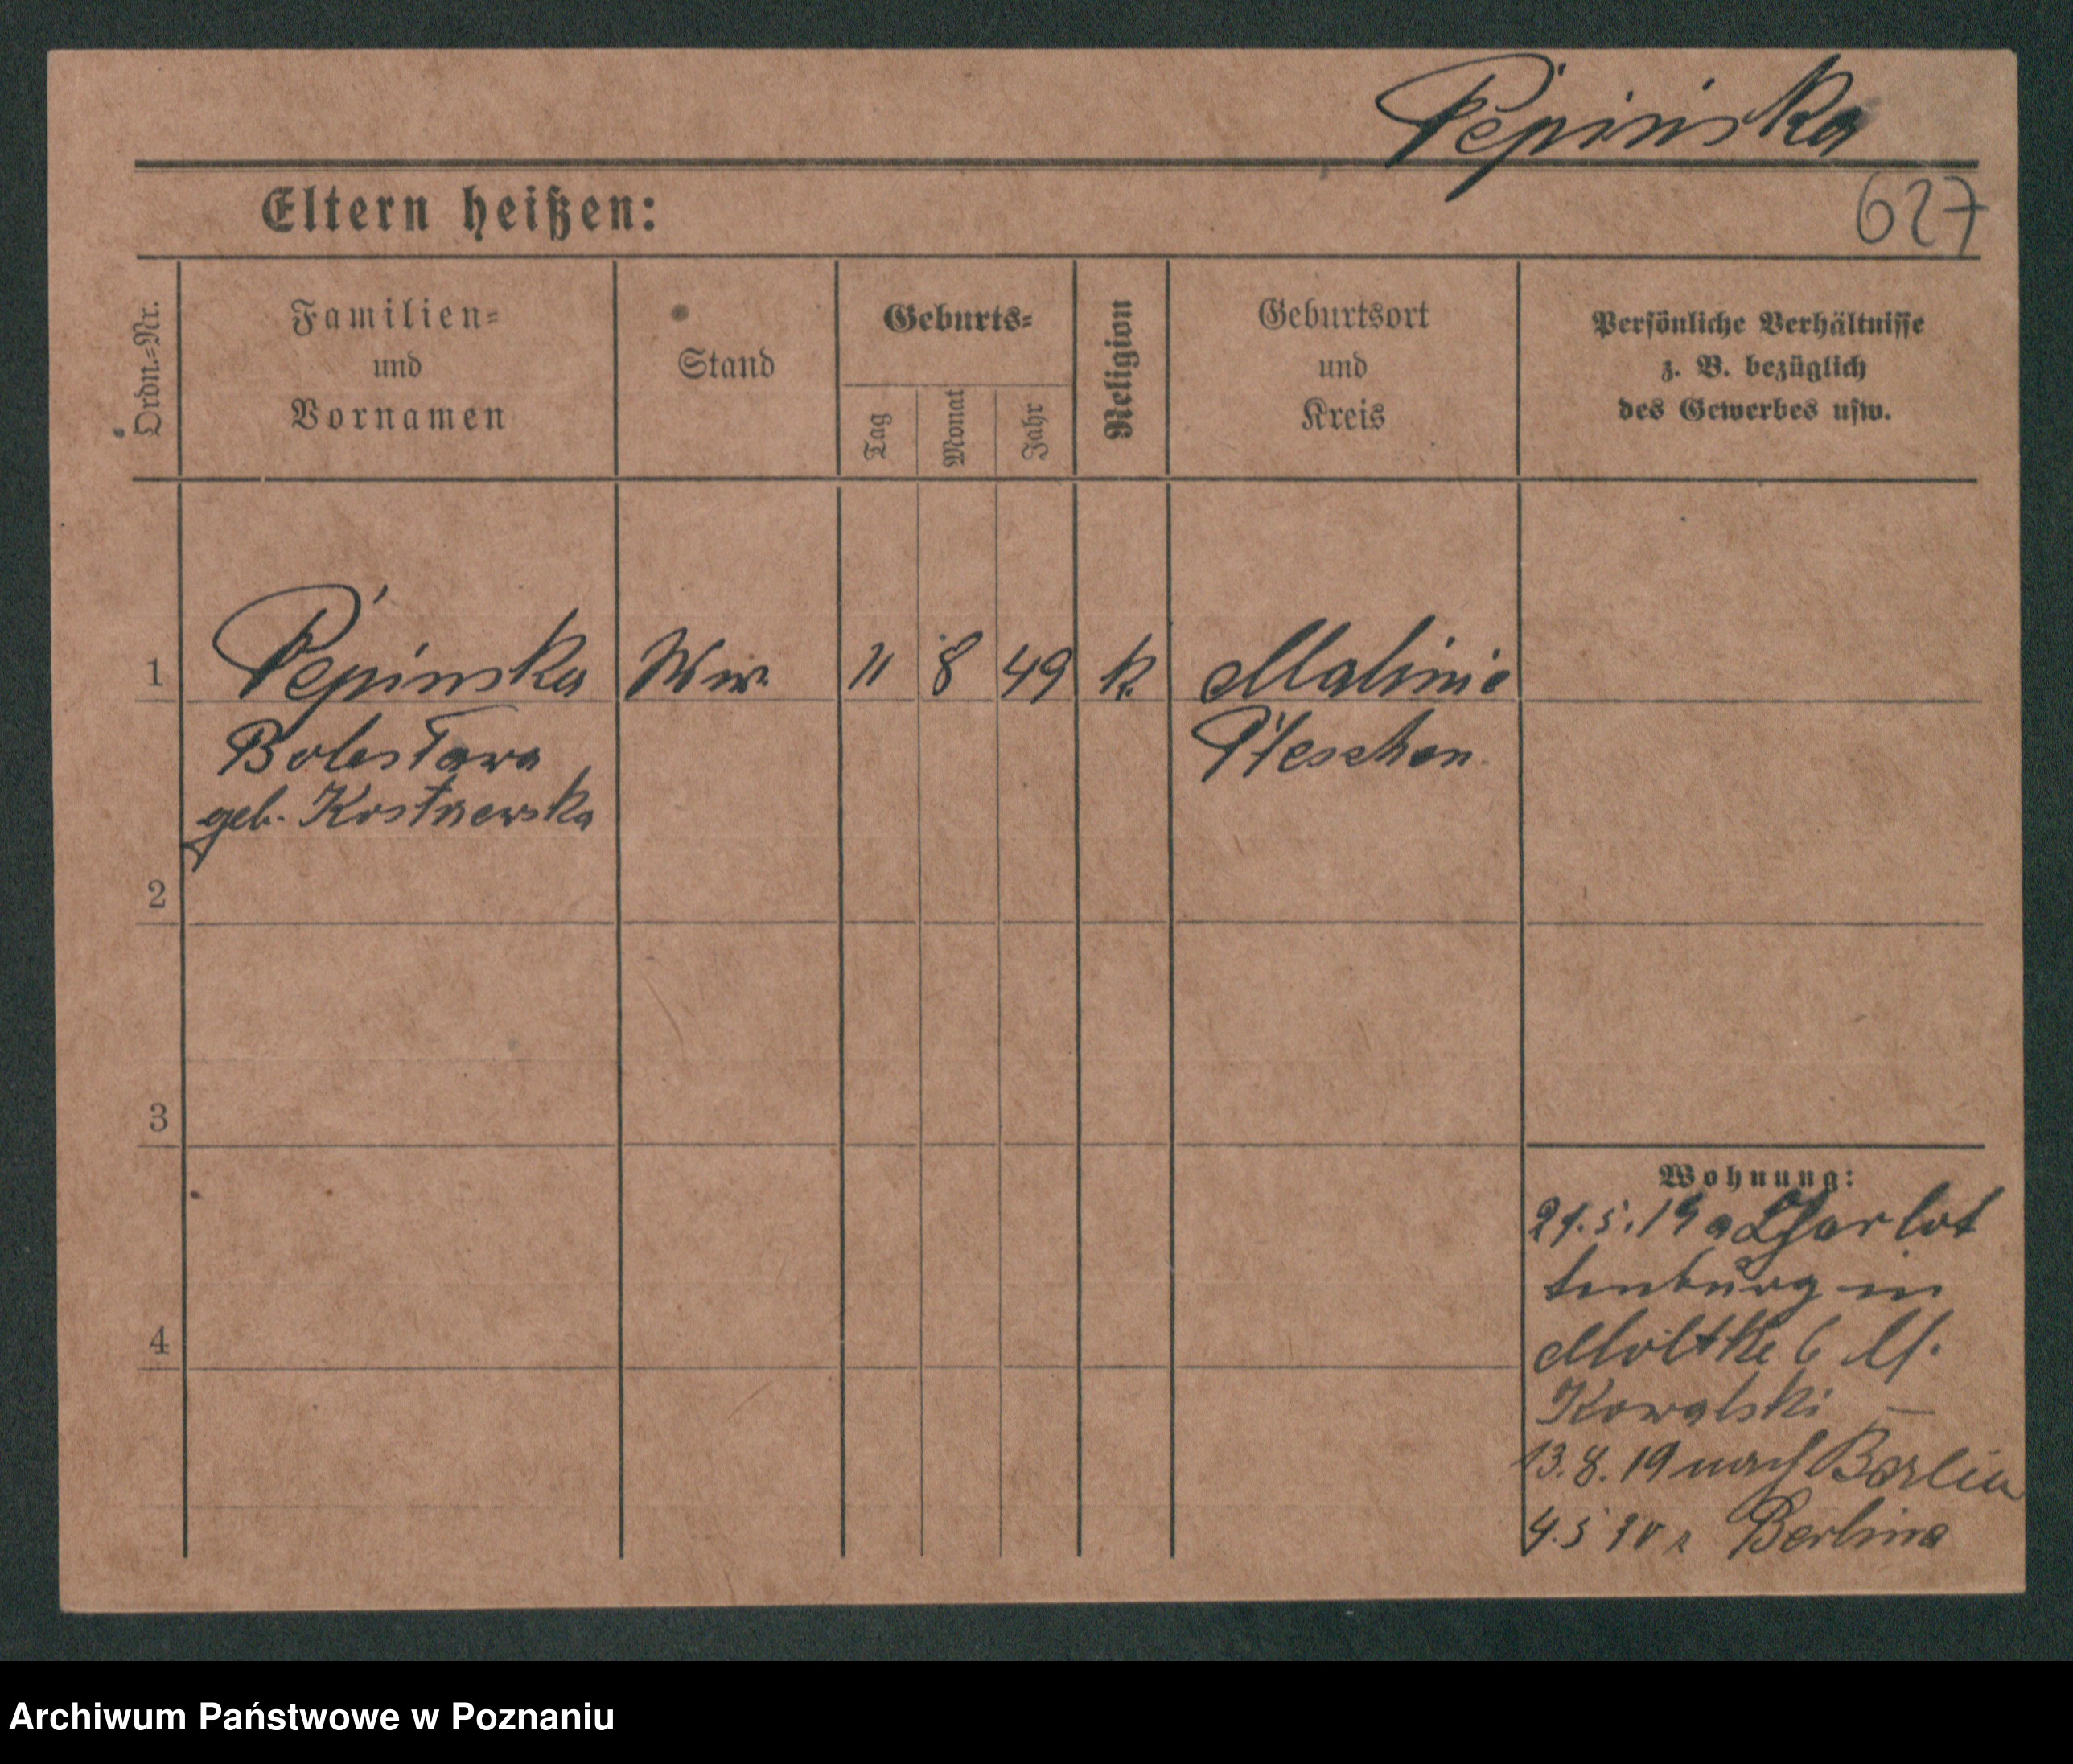 Pepinska
Eltern heißen:
627
Ordn.-Nr.
Familien-
und
Vornamen
Stand
Geburts-
Tag
Monat
Jahr
Religion
Geburtsort
und
Kreis
Persönliche Verhältnisse
z. B. bezüglich
des Gewerbes usw.
1 Pepinska Ww. 11 8 49 k. Malinie
Bolesława Pleschen
geb. Kostnewska
2
3
4
Wohnung:
21.5.19 a Charlot
tenburg in
Moltke 6 M.
Kowalski —
13.8.19 nach Berlin
4.5 Berlina
Archiwum Państwowe w Poznaniu